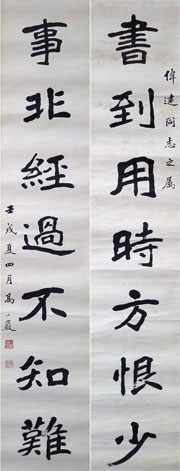 書到用時方恨少
偉建同志之属
事非經過不知難
壬戌夏四月高小巖